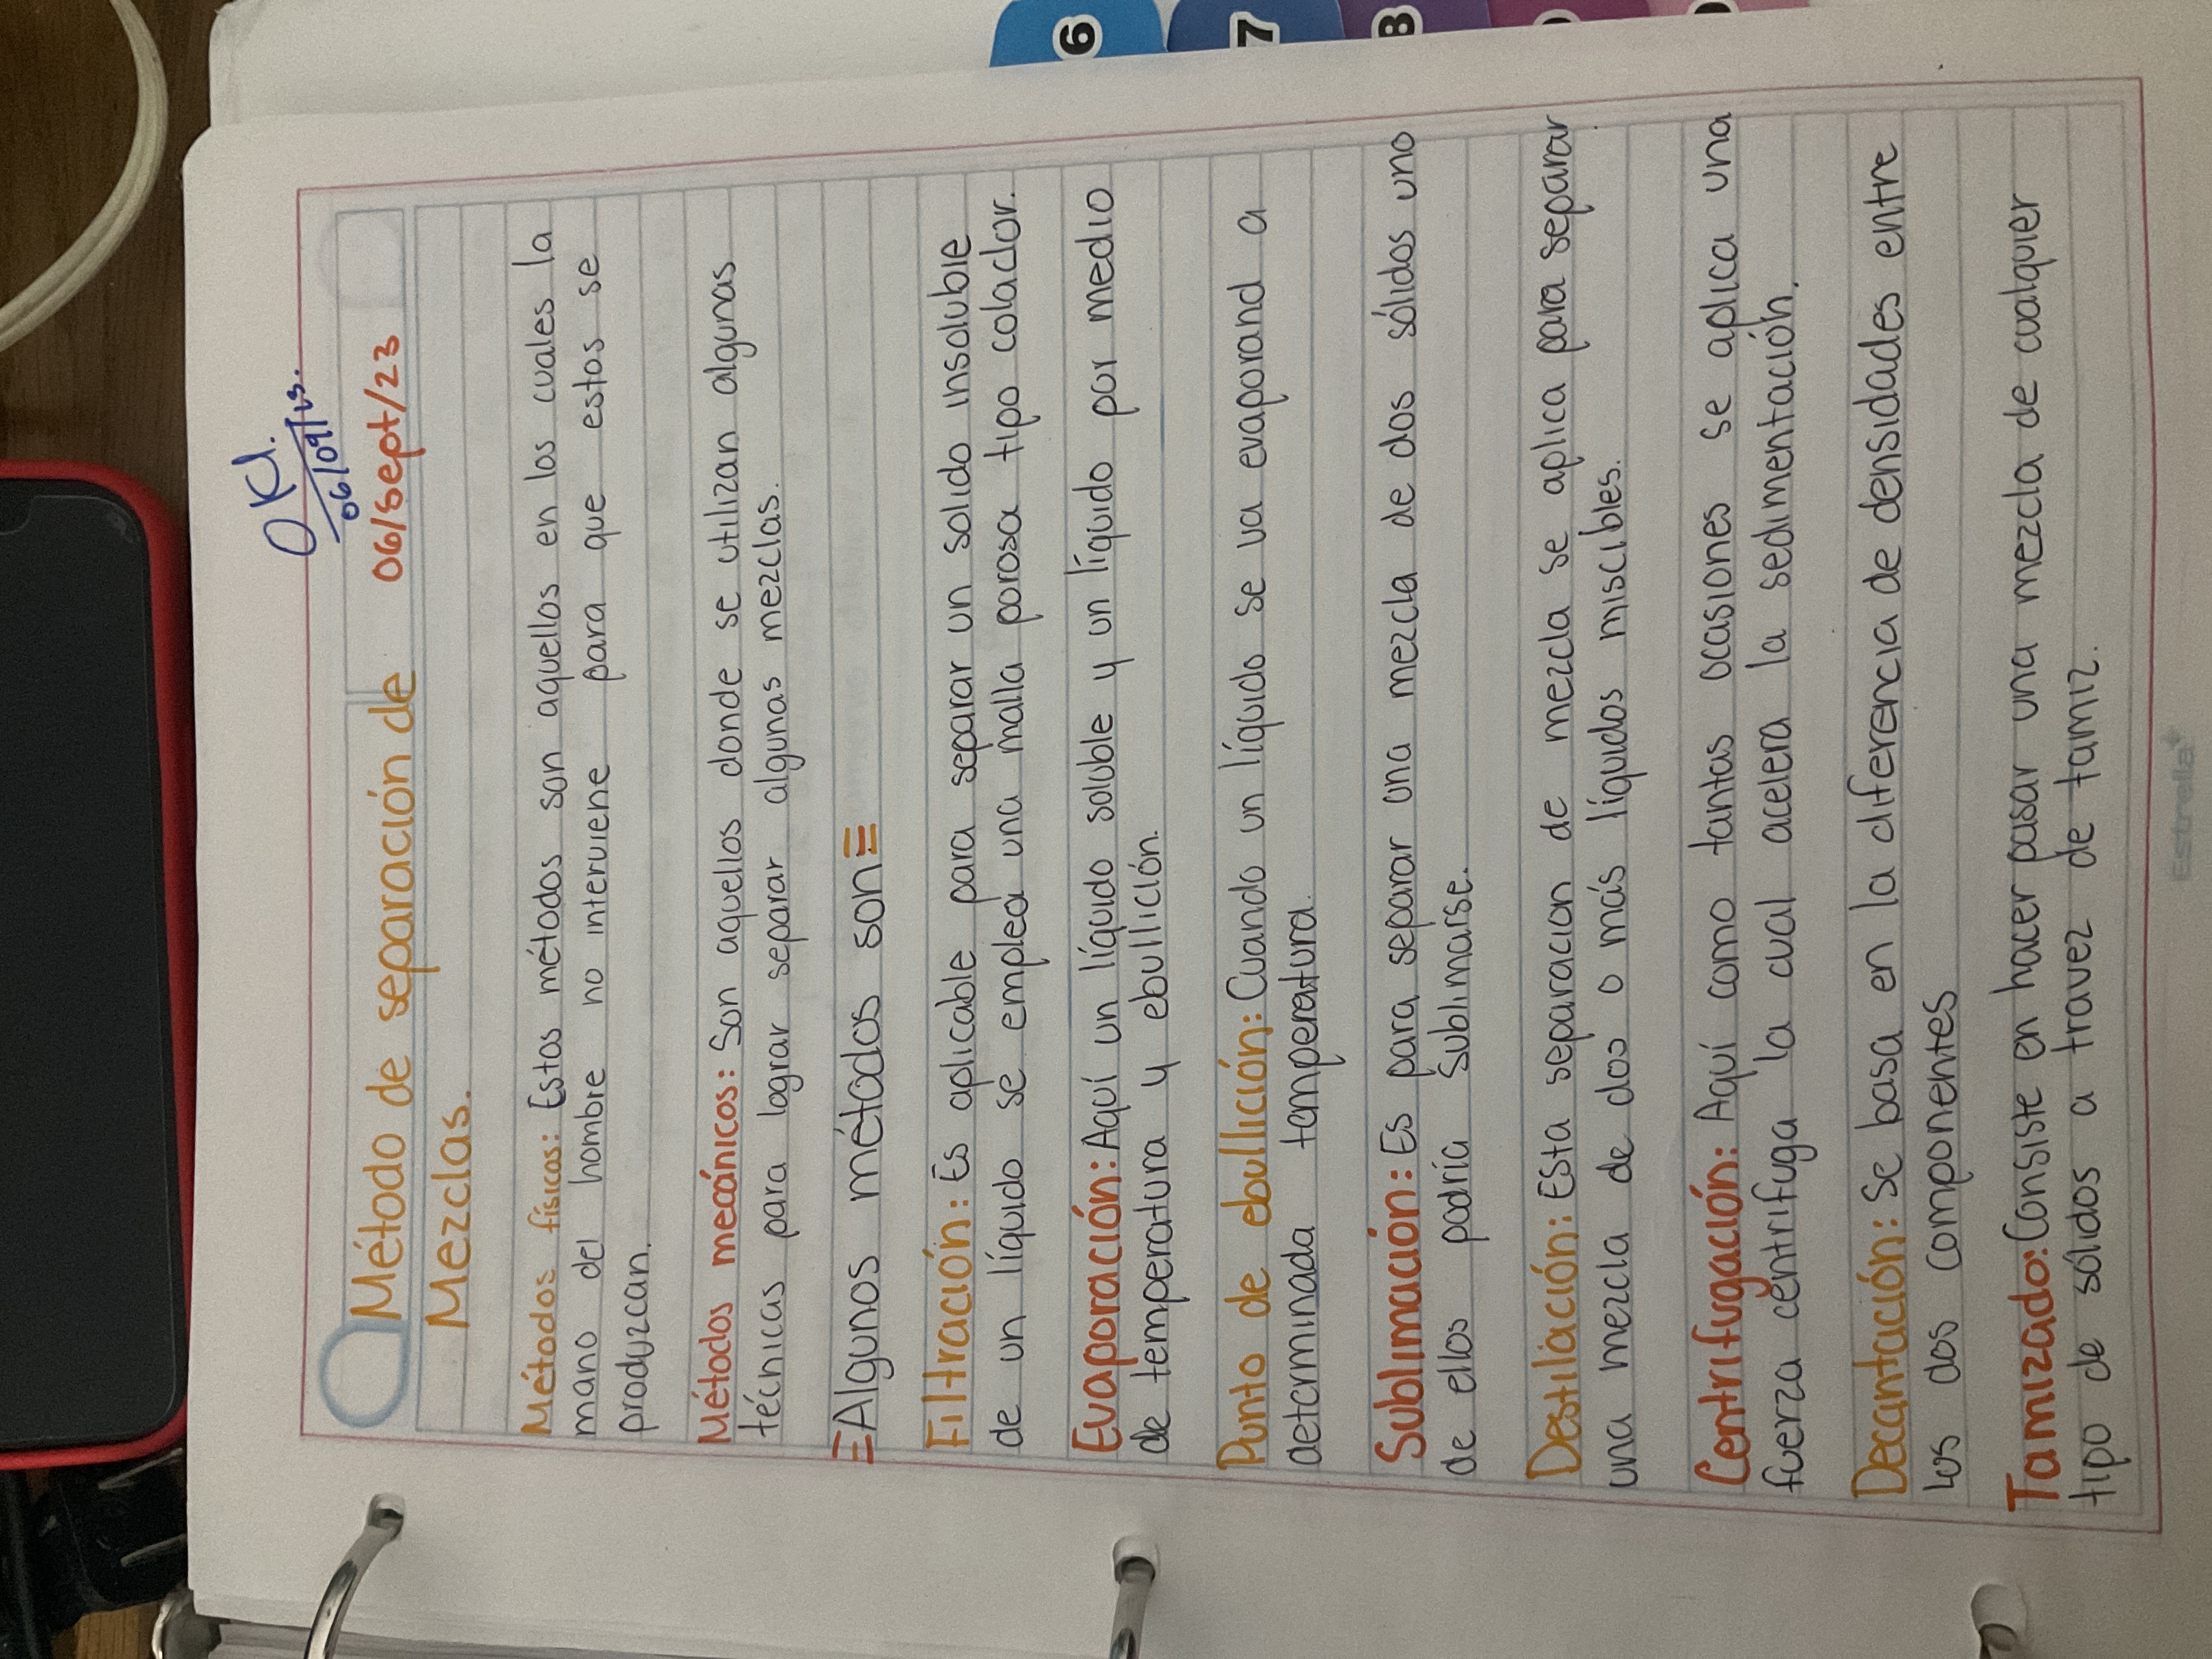 OK.
06/09/23.
Método de separación de 06/sept/23
Mezclas.
Métodos físicos: Estos métodos son aquellos en los cuales la
mano del hombre no interviene para que estos se
produzcan.
Métodos mecánicos: Son aquellos donde se utilizan algunas
técnicas para lograr separar algunas mezclas.
Algunos métodos son
Filtración: Es aplicable para separar un solido insoluble
de un líquido se emplea una malla porosa tipo colador.
Evaporación: Aquí un líquido soluble y un líquido por medio
de temperatura y ebullición.
Punto de ebullición: Cuando un líquido se va evaporand a
determinada temperatura.
Sublimación: Es para separar una mezcla de dos sólidos uno
de ellos podría Sublimarse.
Destilación: Esta separacion de mezcla se aplica para separar
una mezcla de dos o más líquidos miscibles.
Centrifugación: Aquí como tantas ocasiones se aplica una
fuerza céntrifuga la cual acelera la sedimentación.
Decantación: Se basa en la diferencia de densidades entre
los dos componentes
Tamizado: Consiste en hacer pasar una mezcla de cualquier
tipo de sólidos a travez de tamiz.
Estrella
6
7
8